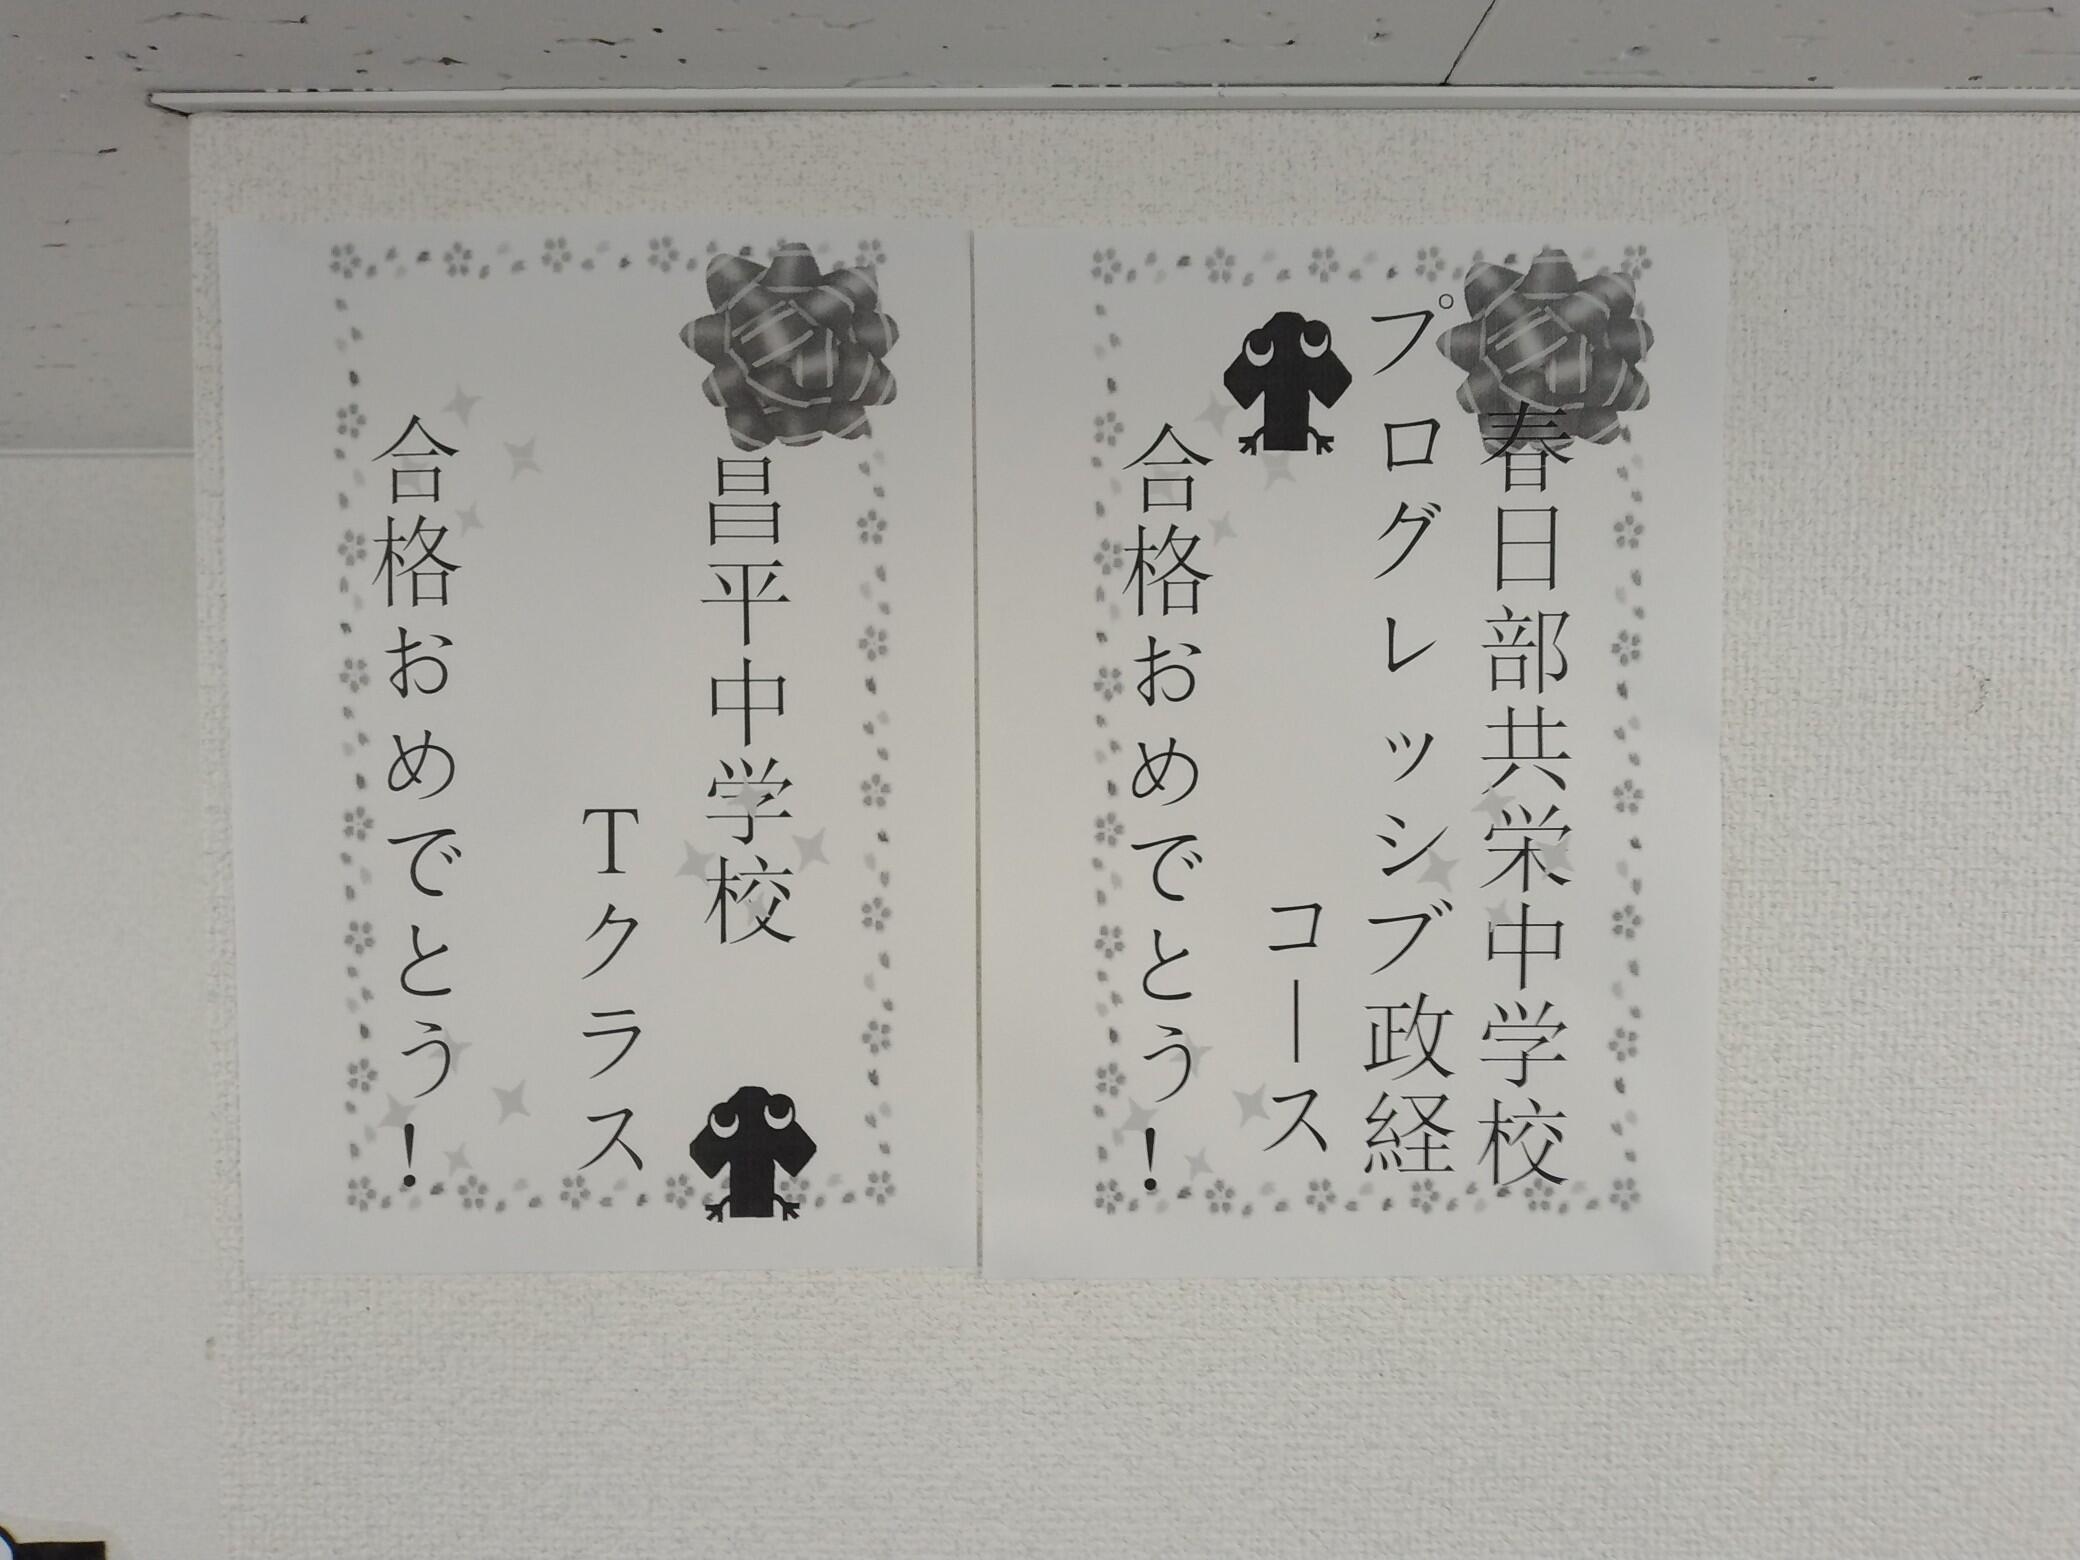 春日部共栄中学校
プログレッシブ政経
コース
合格おめでとう！
昌平中学校
Tクラス
合格おめでとう！